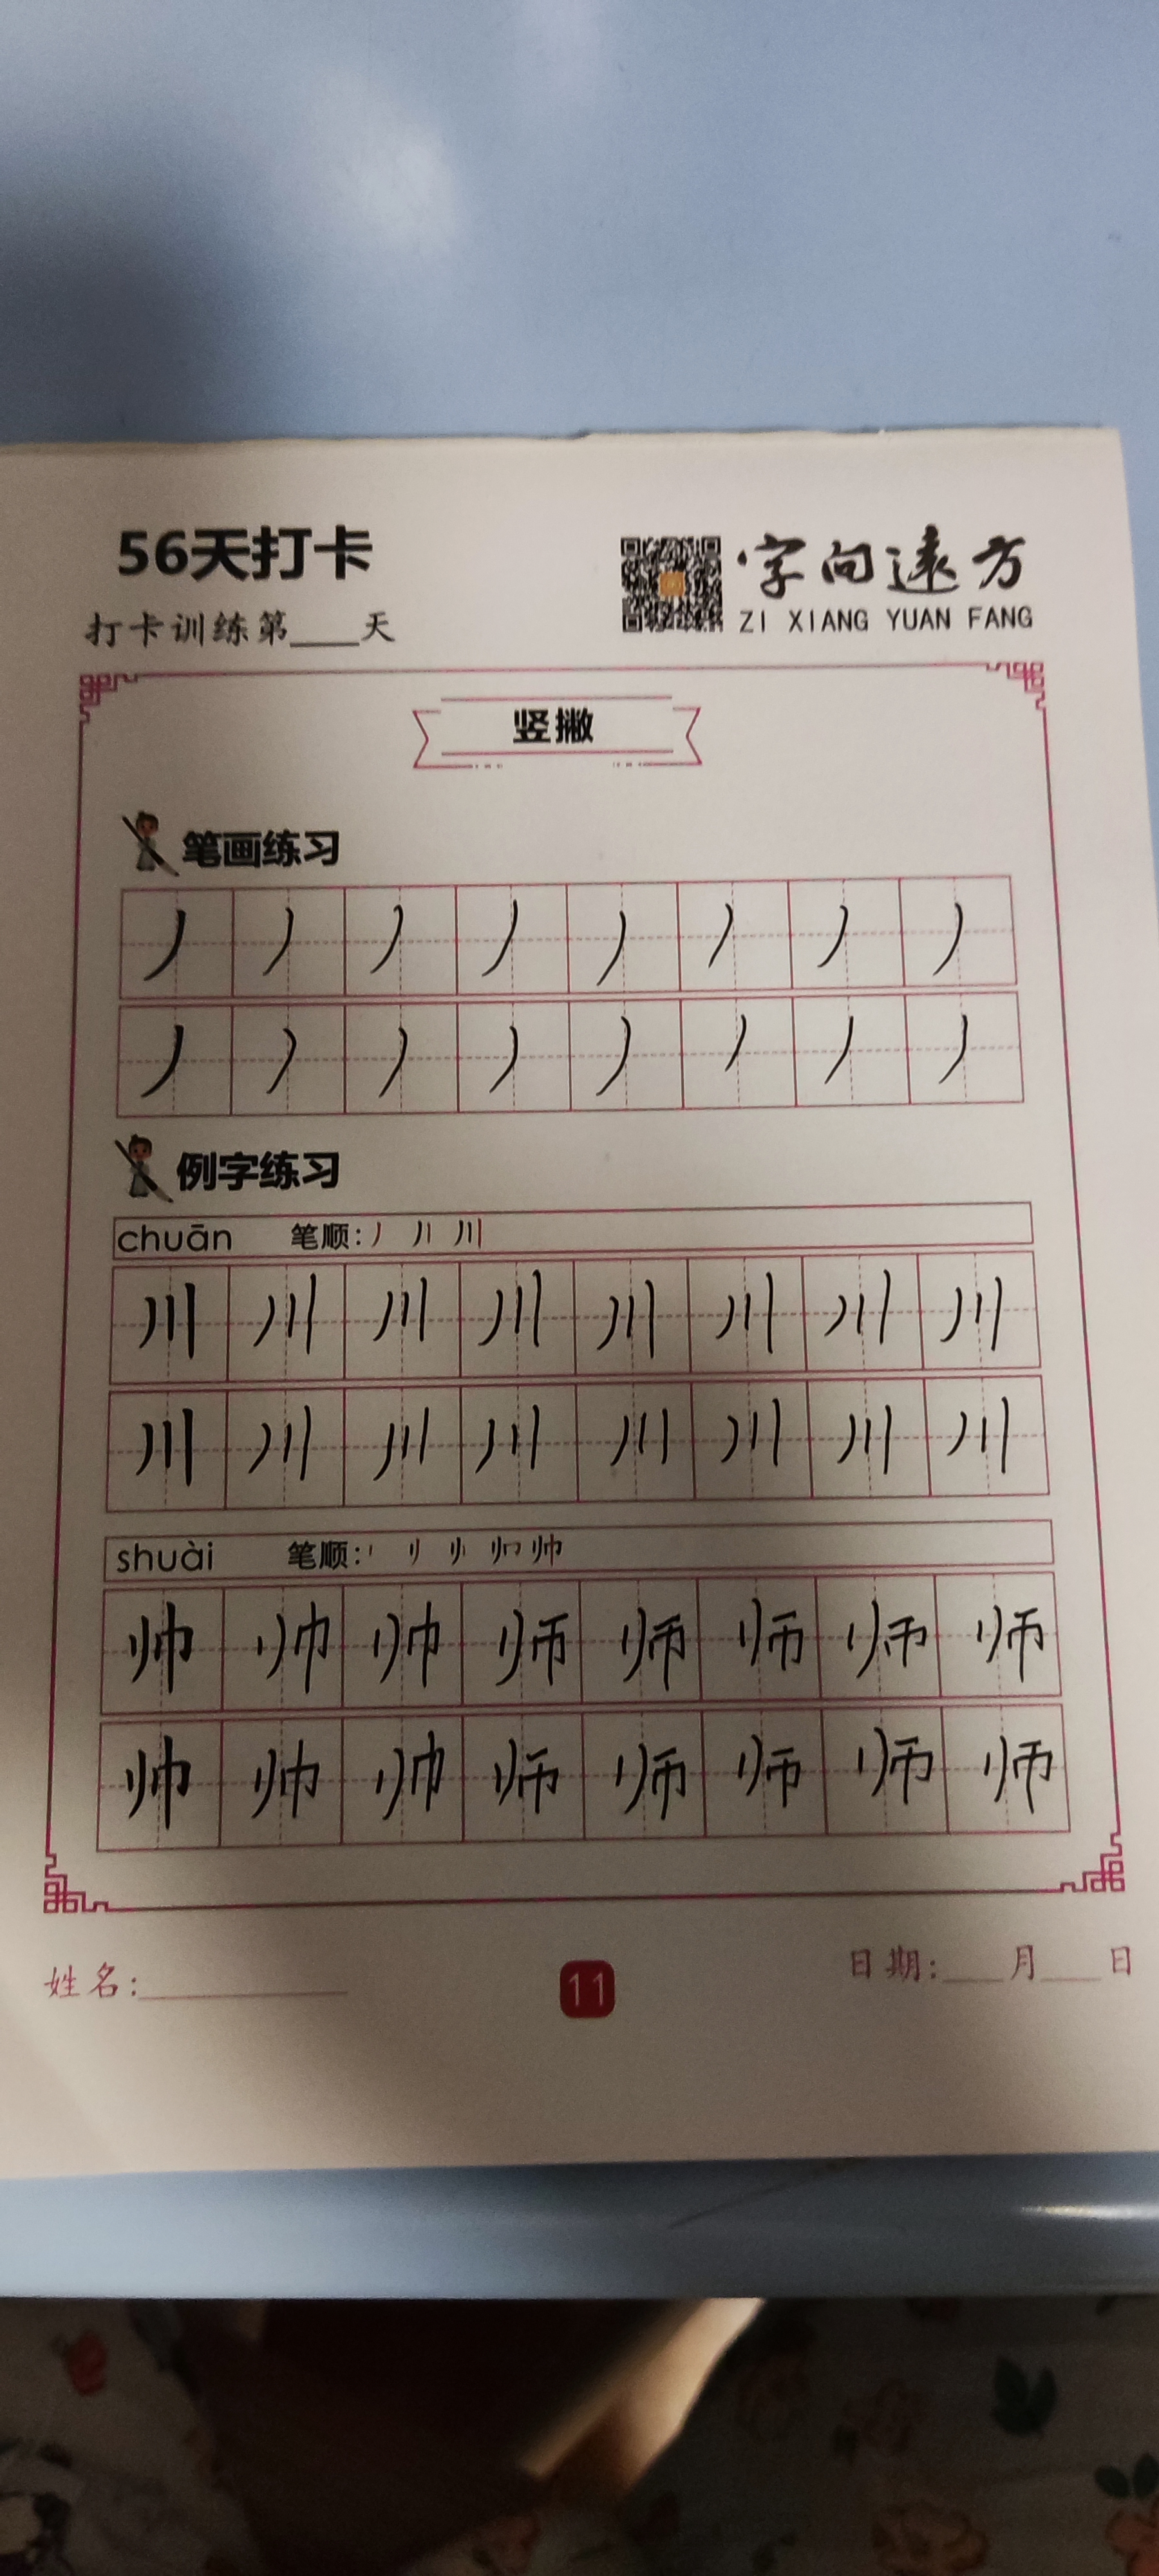 56天打卡
字向远方
ZI XIANG YUAN FANG
打卡训练第____天
竖撇
笔画练习
丿 丿 丿 丿 丿 丿 丿 丿
丿 丿 丿 丿 丿 丿 丿 丿
例字练习
chuān 笔顺:丿 丿丨 川
川 川 川 川 川 川 川 川
川 川 川 川 川 川 川 川
shuài 笔顺: 帅
帅 帅 帅 师 师 师 师 师
帅 帅 帅 师 师 师 师 师
姓名:__________
11
日期:___月___日